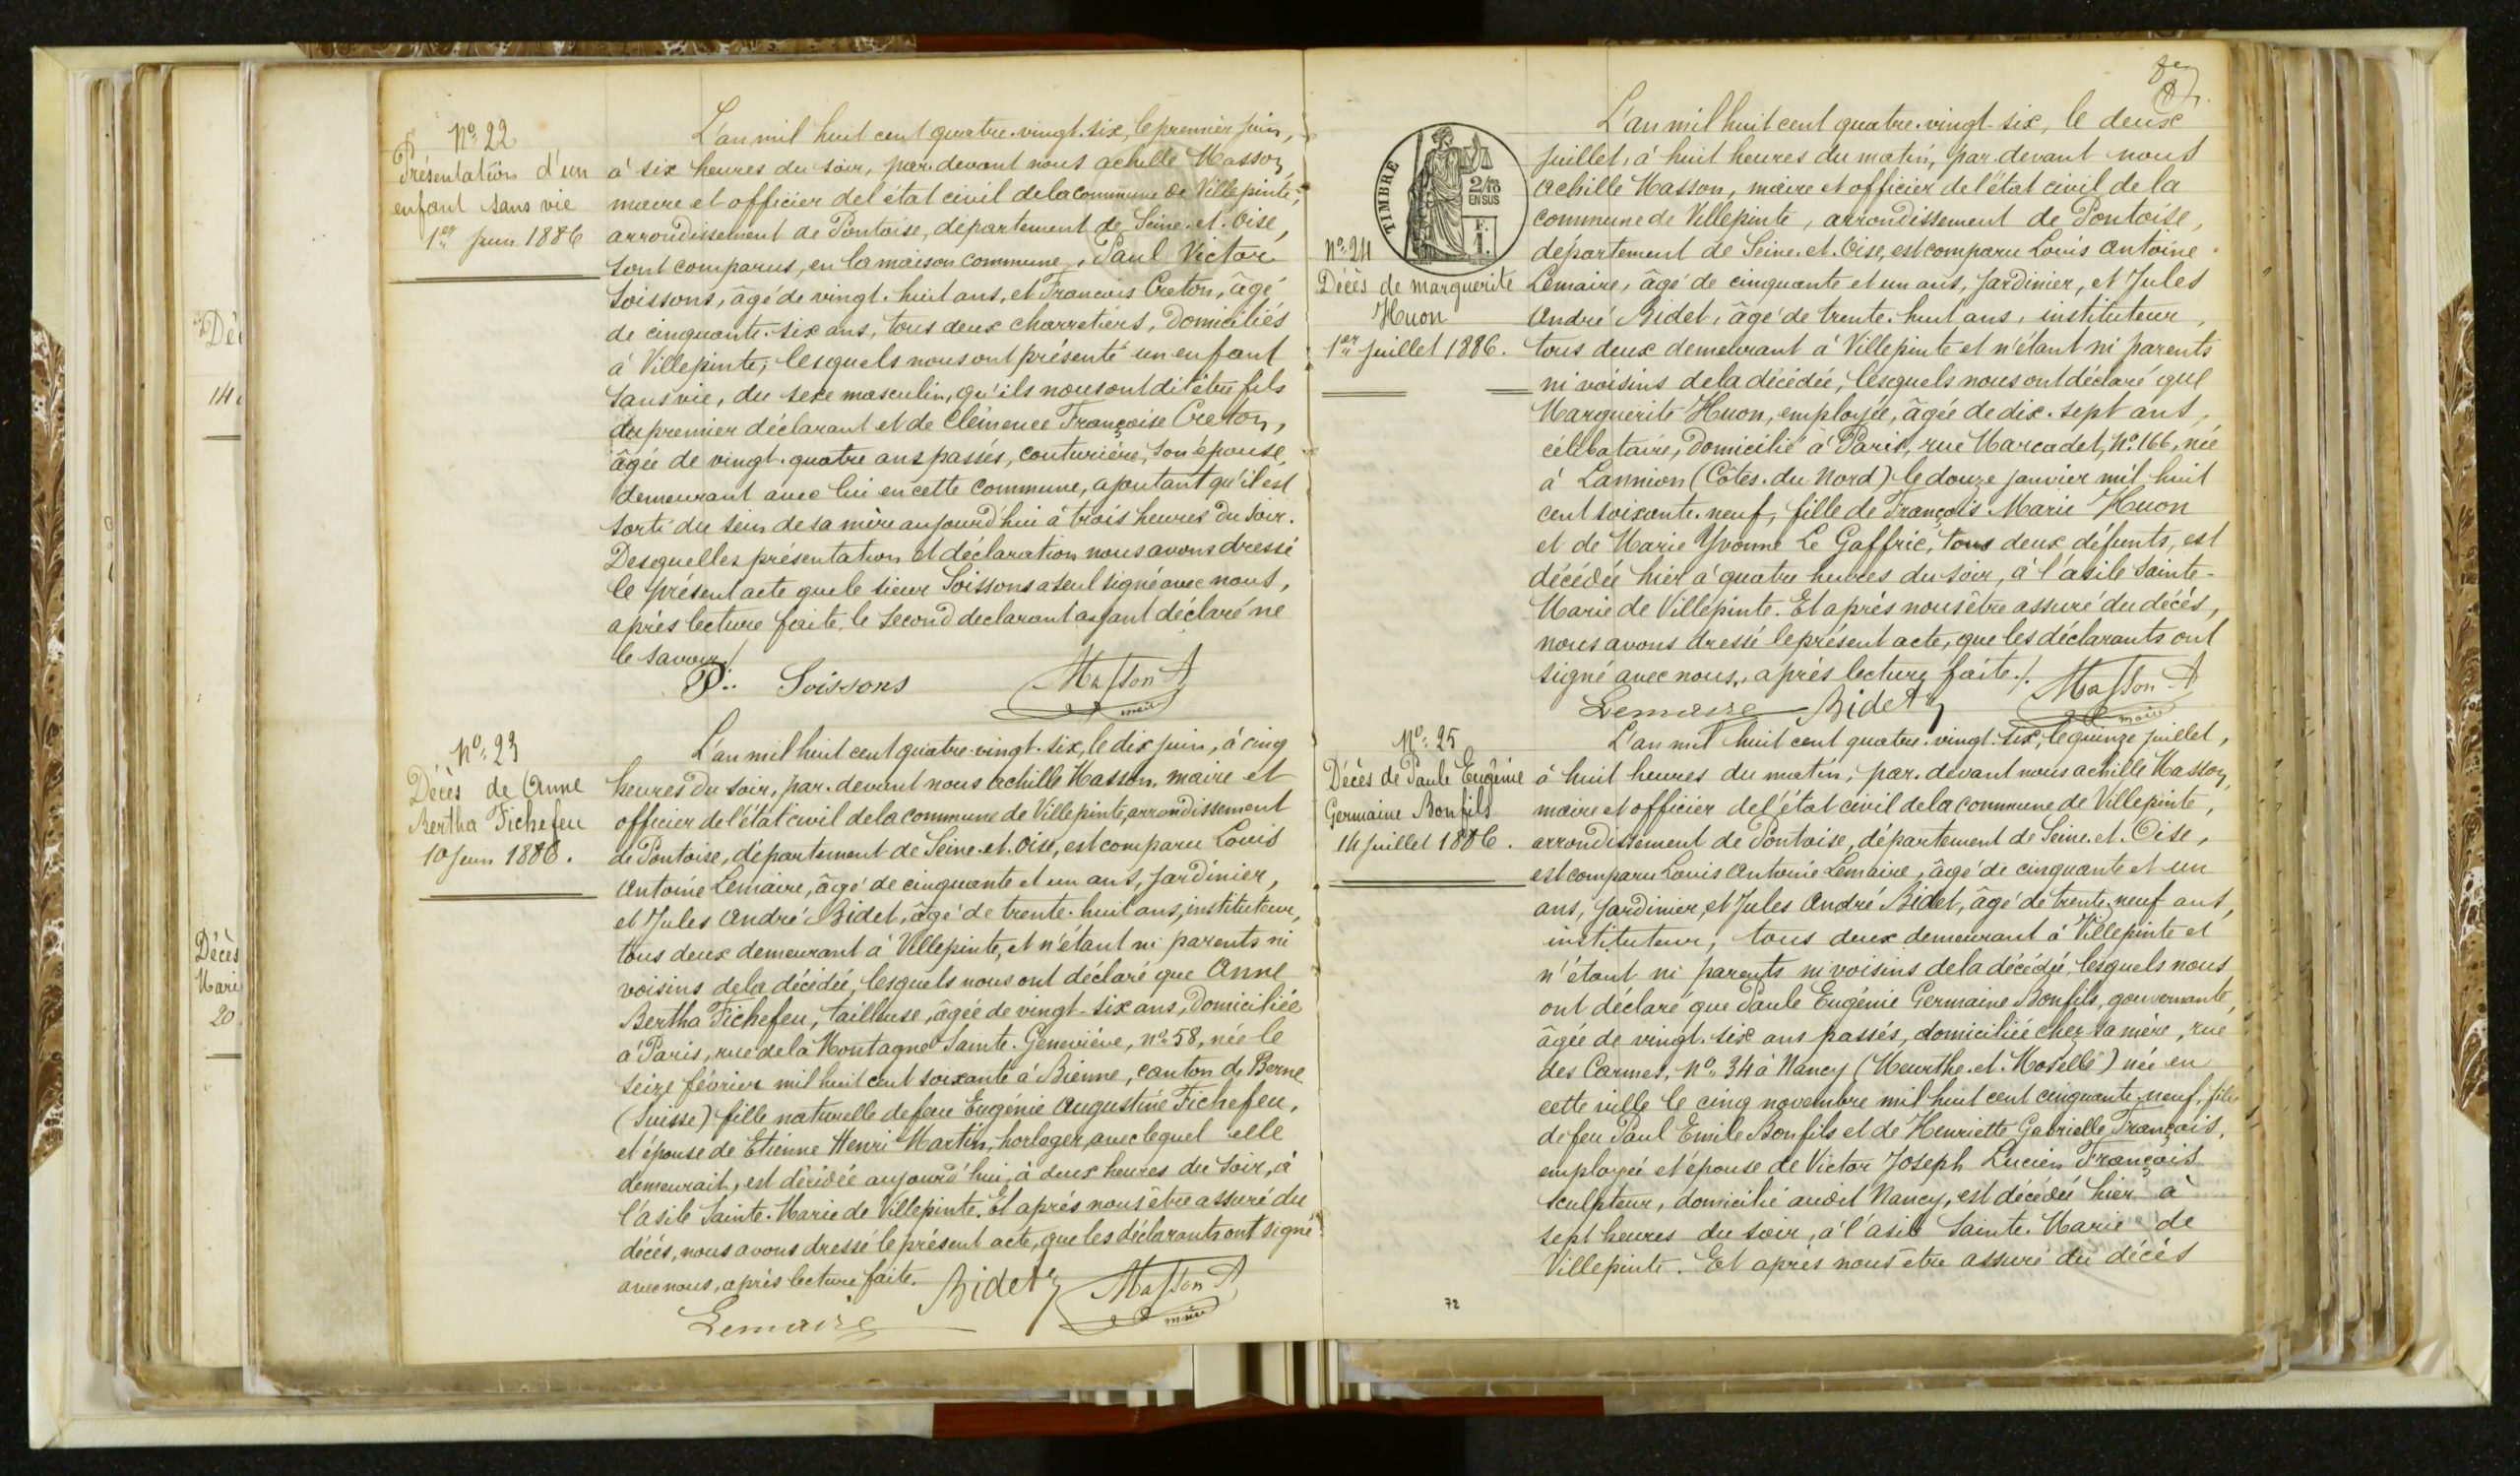 Nº 22
Présentation d'un
enfant sans vie
1er Juin 1886
L'an mil huit cent quatre-vingt-six, le premier juin,
à six heures du soir, par-devant nous Achille Masson,
maire et officier de l'état civil de la commune de Villepinte,
arrondissement de Pontoise, département de Seine-et-Oise,
sont comparus, en la maison commune, Paul Victor
Soissons, âgé de vingt-huit ans, et François Creton, âgé
de cinquante-six ans, tous deux charretiers, domiciliés
à Villepinte; lesquels nous ont présenté un enfant
sans vie, du sexe masculin, qu'ils nous ont dit être fils
du premier déclarant et de Clémence Françoise Creton,
âgée de vingt-quatre ans passés, couturière, son épouse,
demeurant avec lui en cette commune, ajoutant qu'il est
sorti du sein de sa mère aujourd'hui à trois heures du soir.
Desquelles présentation et déclaration nous avons dressé
le présent acte que le sieur Soissons a seul signé avec nous,
après lecture faite, le second declarant ayant déclaré ne
le savoir./
P. Soissons Masson A
maire
Nº 23
Décès de Anne
Bertha Fichefeu
10 Juin 1886.
L'an mil huit cent quatre-vingt-six, le dix juin, à cinq
heures du soir, par-devant nous Achille Masson, maire et
officier de l'état civil de la commune de Villepinte, arrondissement
de Pontoise, département de Seine-et-Oise, est comparu Louis
Antoine Lemaire, âgé de cinquante et un ans, jardinier,
et Jules André Bidet, âgé de trente-huit ans, instituteur,
tous deux demeurant à Villepinte, et n'étant ni parents ni
voisins de la décédée, lesquels nous ont déclaré que Anne
Bertha Fichefeu, tailleuse, âgée de vingt-six ans, domiciliée
à Paris, rue de la Montagne Sainte-Geneviève, nº 58, née le
seize février mil huit cent soixante à Bienne, canton de Berne
(Suisse) fille naturelle de feue Eugénie Augustine Fichefeu,
et épouse de Etienne Henri Martin, horloger, avec lequel elle
demeurait, est décédée aujourd'hui, à deux heures du soir, à
l'asile Sainte-Marie de Villepinte. Et après nous être assuré du
décès, nous avons dressé le présent acte, que les déclarants ont signé
avec nous, après lecture faite. Bidet Masson A
Lemaire maire
8e
TIMBRE
2/10
EN SUS
F.
1.
Nº 24
Décès de marguerite
Huon
1er juillet 1886.
L'an mil huit cent quatre-vingt-six, le deux
juillet, à huit heures du matin, par-devant nous
Achille Masson, maire et officier de l'état civil de la
commune de Villepinte, arrondissement de Pontoise,
département de Seine-et-Oise, est comparu Louis Antoine
Lemaire, âgé de cinquante et un ans, Jardinier, et Jules
André Bidet, âgé de trente-huit ans, instituteur,
tous deux demeurant à Villepinte et n'étant ni parents
ni voisins de la décédée, lesquels nous ont déclaré que
Marguerite Huon, employée, âgée de dix-sept ans,
célibataire, domicilié à Paris, rue Marcadet, Nº 166, née
à Lannion (Côtes-du-Nord) le douze janvier mil huit
cent soixante-neuf, fille de François Marie Huon
et de Marie Yvonne Le Gaffric, tous deux défunts, est
décédée hier à quatre heures du soir, à l'asile Sainte-
Marie de Villepinte. Et après nous être assuré du décès,
nous avons dressé le présent acte, que les déclarants ont
signé avec nous, après lecture faite./. Masson A
Lemaire Bidet maire
Nº 25
Décès de Paule Eugénie
Germaine Bonfils
14 juillet 1886.
L'an mil huit cent quatre-vingt-six, le quinze juillet,
à huit heures du matin, par-devant nous Achille Masson,
maire et officier de l'état civil de la commune de Villepinte,
arrondissement de Pontoise, département de Seine-et-Oise,
est comparu Louis Antoine Lemaire, âgé de cinquante et un
ans, jardinier, et Jules André Bidet, âgé de trente-neuf ans,
instituteur, tous deux demeurant à Villepinte et
n'étant ni parents ni voisins de la décédée, lesquels nous
ont déclaré que Paule Eugénie Germaine Bonfils, gouvernante,
âgée de vingt-six ans passés, domiciliée chez sa mère, rue
des Carmes, nº 34 à Nancy (Meurthe-et-Moselle) née en
cette ville le cinq novembre mil huit cent cinquante-neuf, fille
de feu Paul Emile Bonfils et de Henriette Gabrielle François,
employée et épouse de Victor Joseph Lucien François
sculpteur, domicilié audit Nancy, est décédée hier à
sept heures du soir, à l'asile Sainte-Marie de
Villepinte. Et après nous être assuré du décès
72
Décès
Mari
20